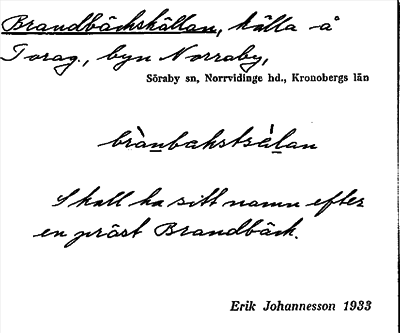 Brandbäckskällan, källa å
Torag., byn Norraby,
Söraby sn, Norrvidinge hd., Kronobergs län
brànbakstsàlan
Skall ha sitt namn efter
en präst Brandbäck.
Erik Johannesson 1933